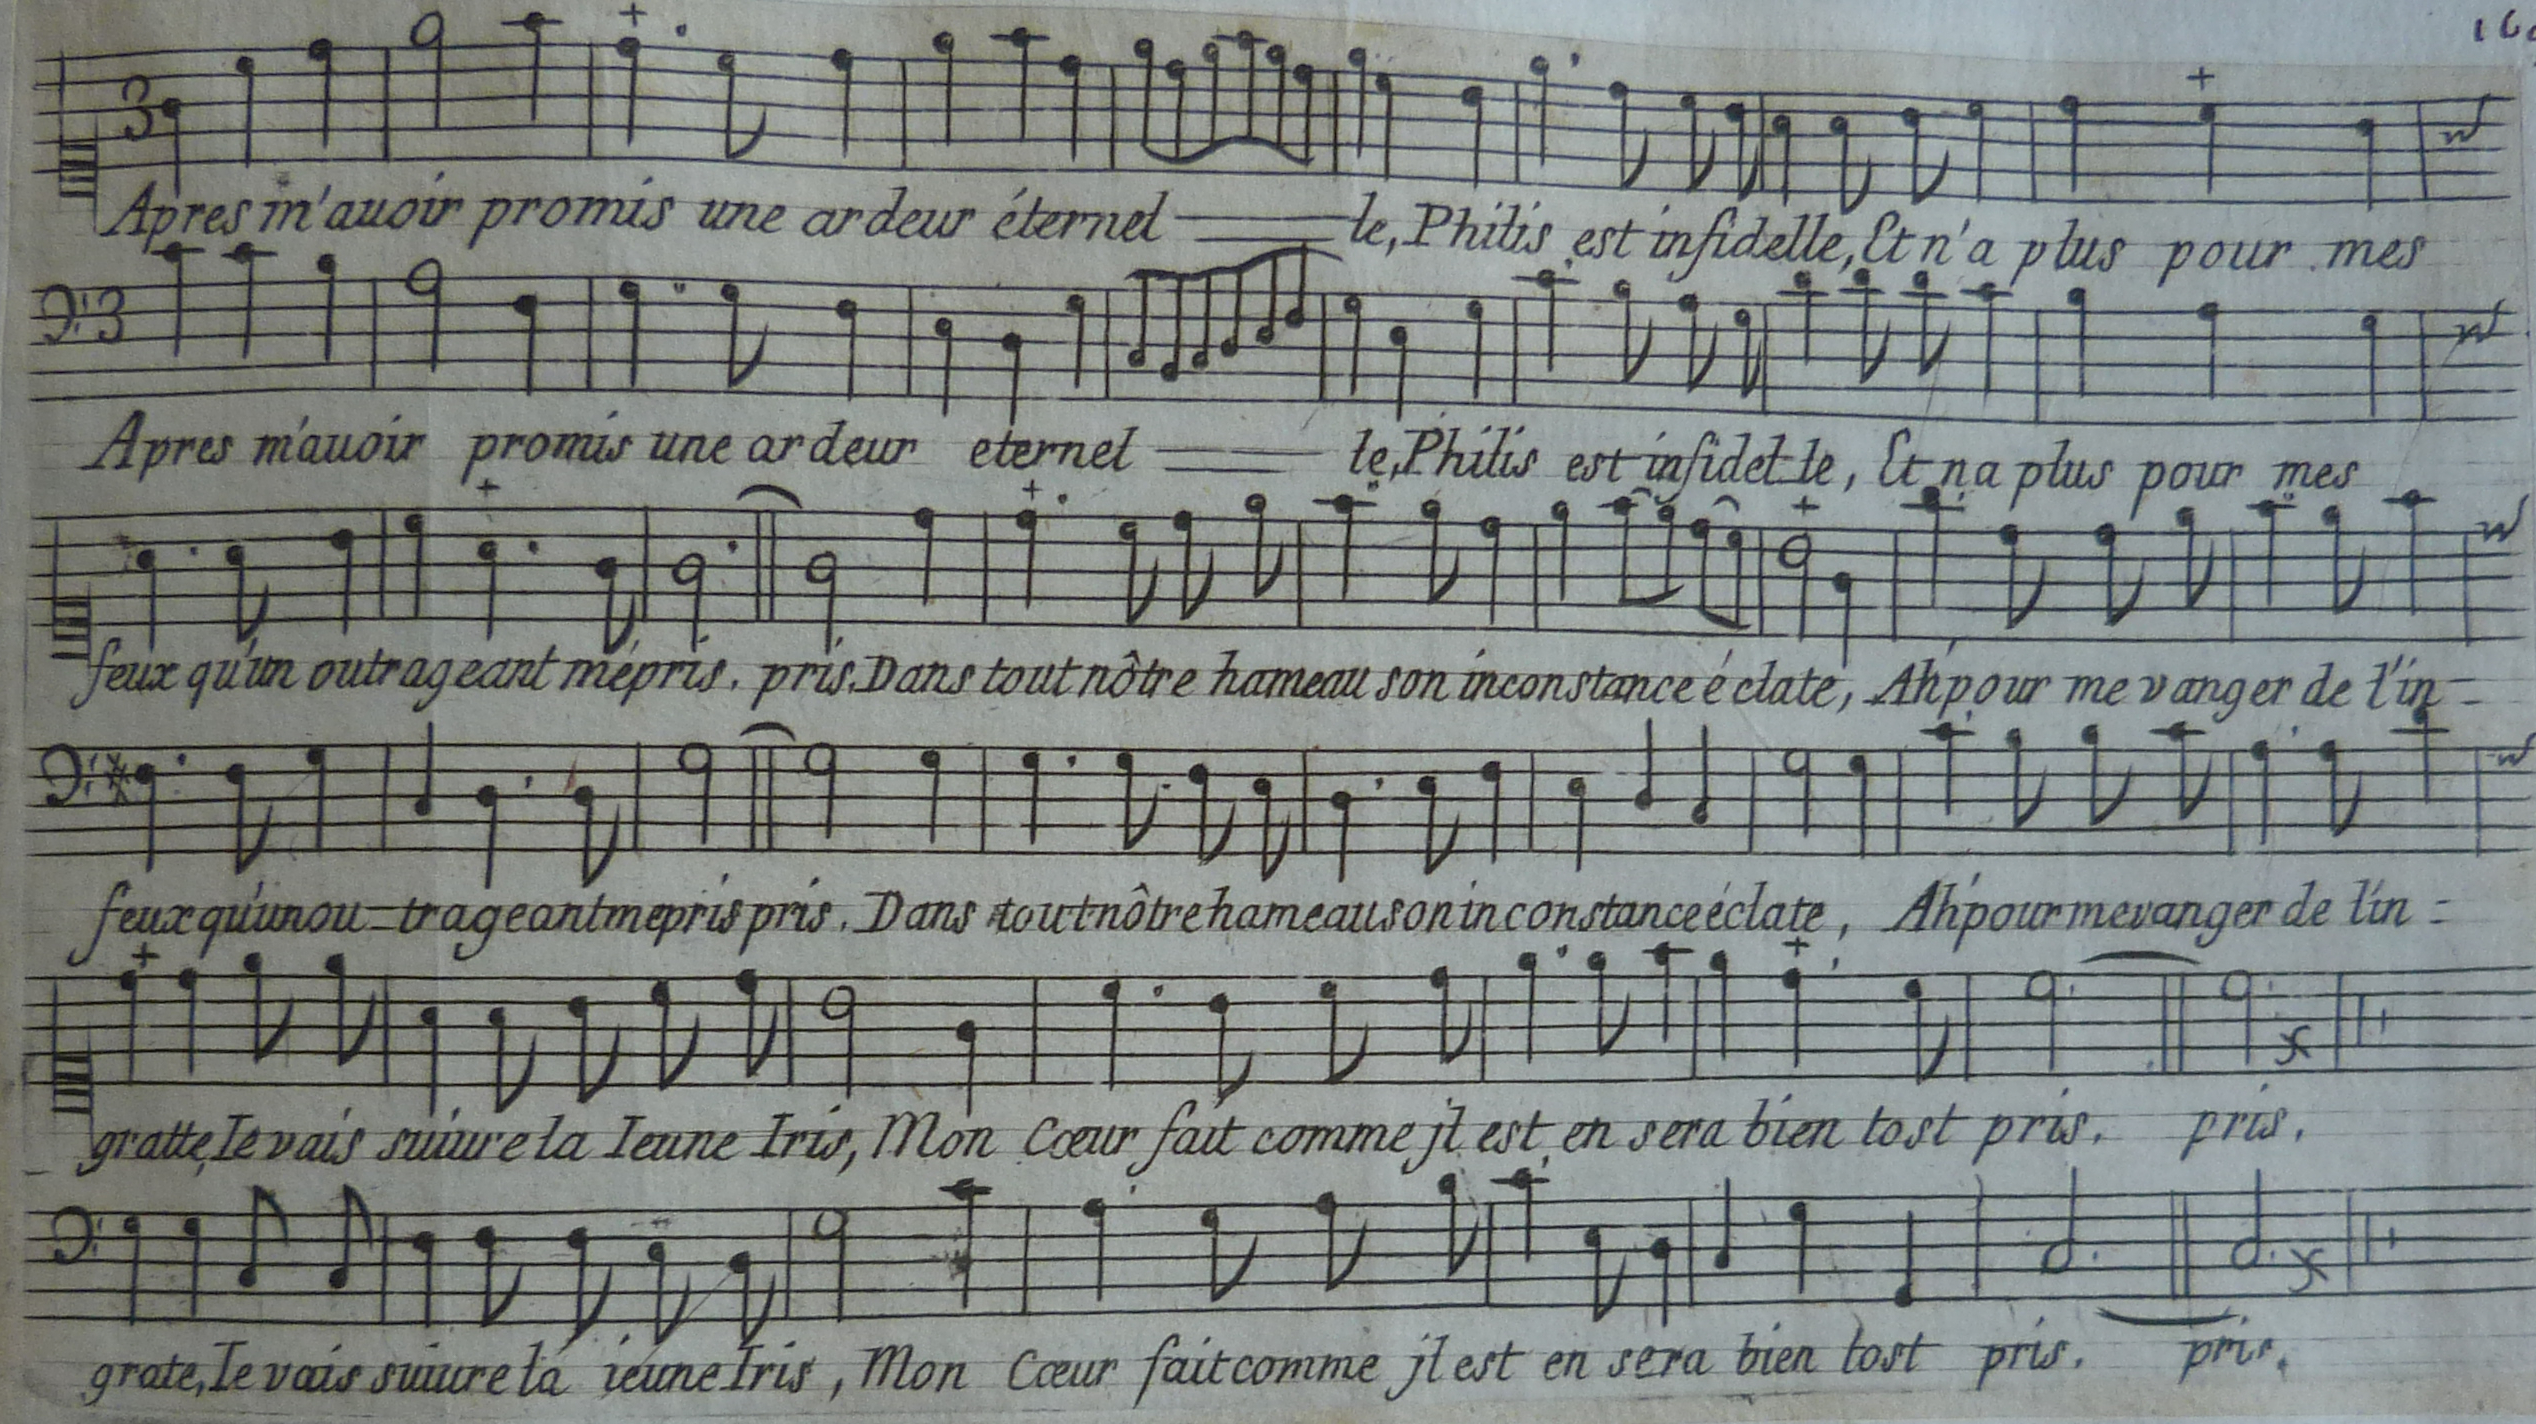 3
Apres m'auoir promis une ardeur éternel le, Philis est infidelle, Et n'a plus pour mes
3
Apres m'auoir promis une ardeur eternel le, Philis est infidel le, Et n'a plus pour mes
feux qu'un outrageant mépris. pris. Dans tout nôtre hameau son inconstance éclate, Ah pour me vanger de l'in-
feux qu'un ou-trageant mepris pris. Dans tout nôtre hameau son inconstance éclate, Ah pour me vanger de l'in=
gratte, Ie vais suiure la Ieune Iris, Mon Cœur fait comme jl est en sera bien tost pris. pris.
grate, Ie vais suiure la ieune Iris, Mon Cœur fait comme jl est en sera bien tost pris. pris.